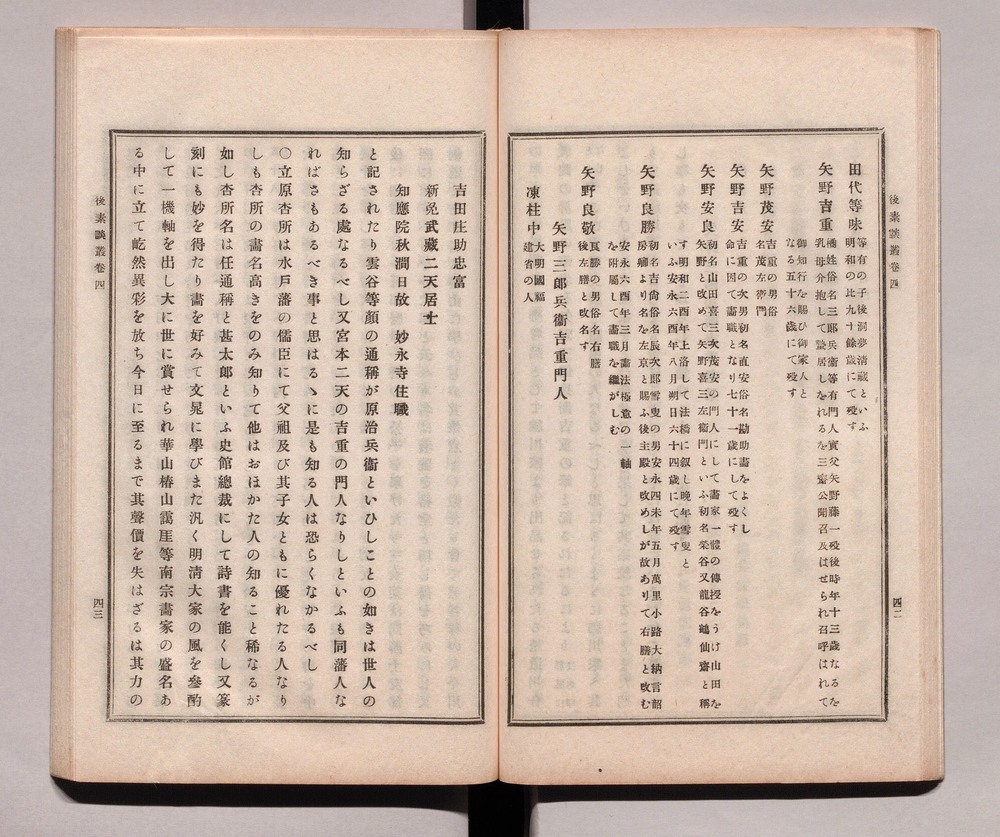 後素談叢卷四
四二
田代等味
等有の子後洞夢淸蔵といふ
明和の比九十餘歲にて歿す
矢野吉重
橘姓俗名三郎兵衞等有門人實父矢野藤一歿後時年十三歲なるを
乳母介抱して蟄居しをれるを三齋公聞召及ばせられ召呼ばれて
御知行を賜ひ御家人と
なる五十六歲にて歿す
矢野茂安
吉重の男俗
名茂左衞門
矢野吉安
吉重の次男初名直安俗名勘助畵をよくし
命に因て畵職となり七十一歲にして歿す
矢野安良
初名山田喜三次茂安の門人にして畵家一體の傳授をうけ山田を
矢野と改めて矢野喜三左衞門といふ初名榮谷又龍谷鶴仙齋と稱
す明和二酉年上洛して法橋に叙し晩年雪叟と
いふ安永六酉年八月朔日六十四歲にて歿す
矢野良勝
初名吉尙俗名辰次郎雪叟の男安永四未年五月萬里小路大納言韶
房卿より名を左京と賜ふ後主殿と改めしが故ありて右膳と改む
安永六酉年三月畵法極意の一軸
を附屬して畵職を繼がしむ
矢野良敬
良勝の男俗名右膳
後左膳と改名す
矢野三郎兵衞吉重門人
凍柱中
大明國福
建省の人
吉田庄助忠富
新免武藏二天居士
知應院秋澗日故　妙永寺住職
と記されたり雲谷等顔の通稱が原治兵衞といひしことの如きは世人の
知らざる處なるべし又宮本二天の吉重の門人なりしといふも同藩人な
ればさもあるべき事と思はるゝに是も知る人は恐らくなかるべし
〇立原杏所は水戶藩の儒臣にて父祖及び其子女ともに優れたる人なり
しも杏所の畵名高きをのみ知りて他はおほかた人の知ること稀なるが
如し杏所名は任通稱と甚太郎といふ史館總裁にして詩書を能くし又篆
刻にも妙を得たり畵を好みて文晁に學びまた汎く明淸大家の風を參酌
して一機軸を出し大に世に賞せられ華山椿山靄厓等南宗畵家の盛名あ
る中に立て屹然異彩を放ち今日に至るまで其聲價を失はざるは其力の
後素談叢卷四
四三